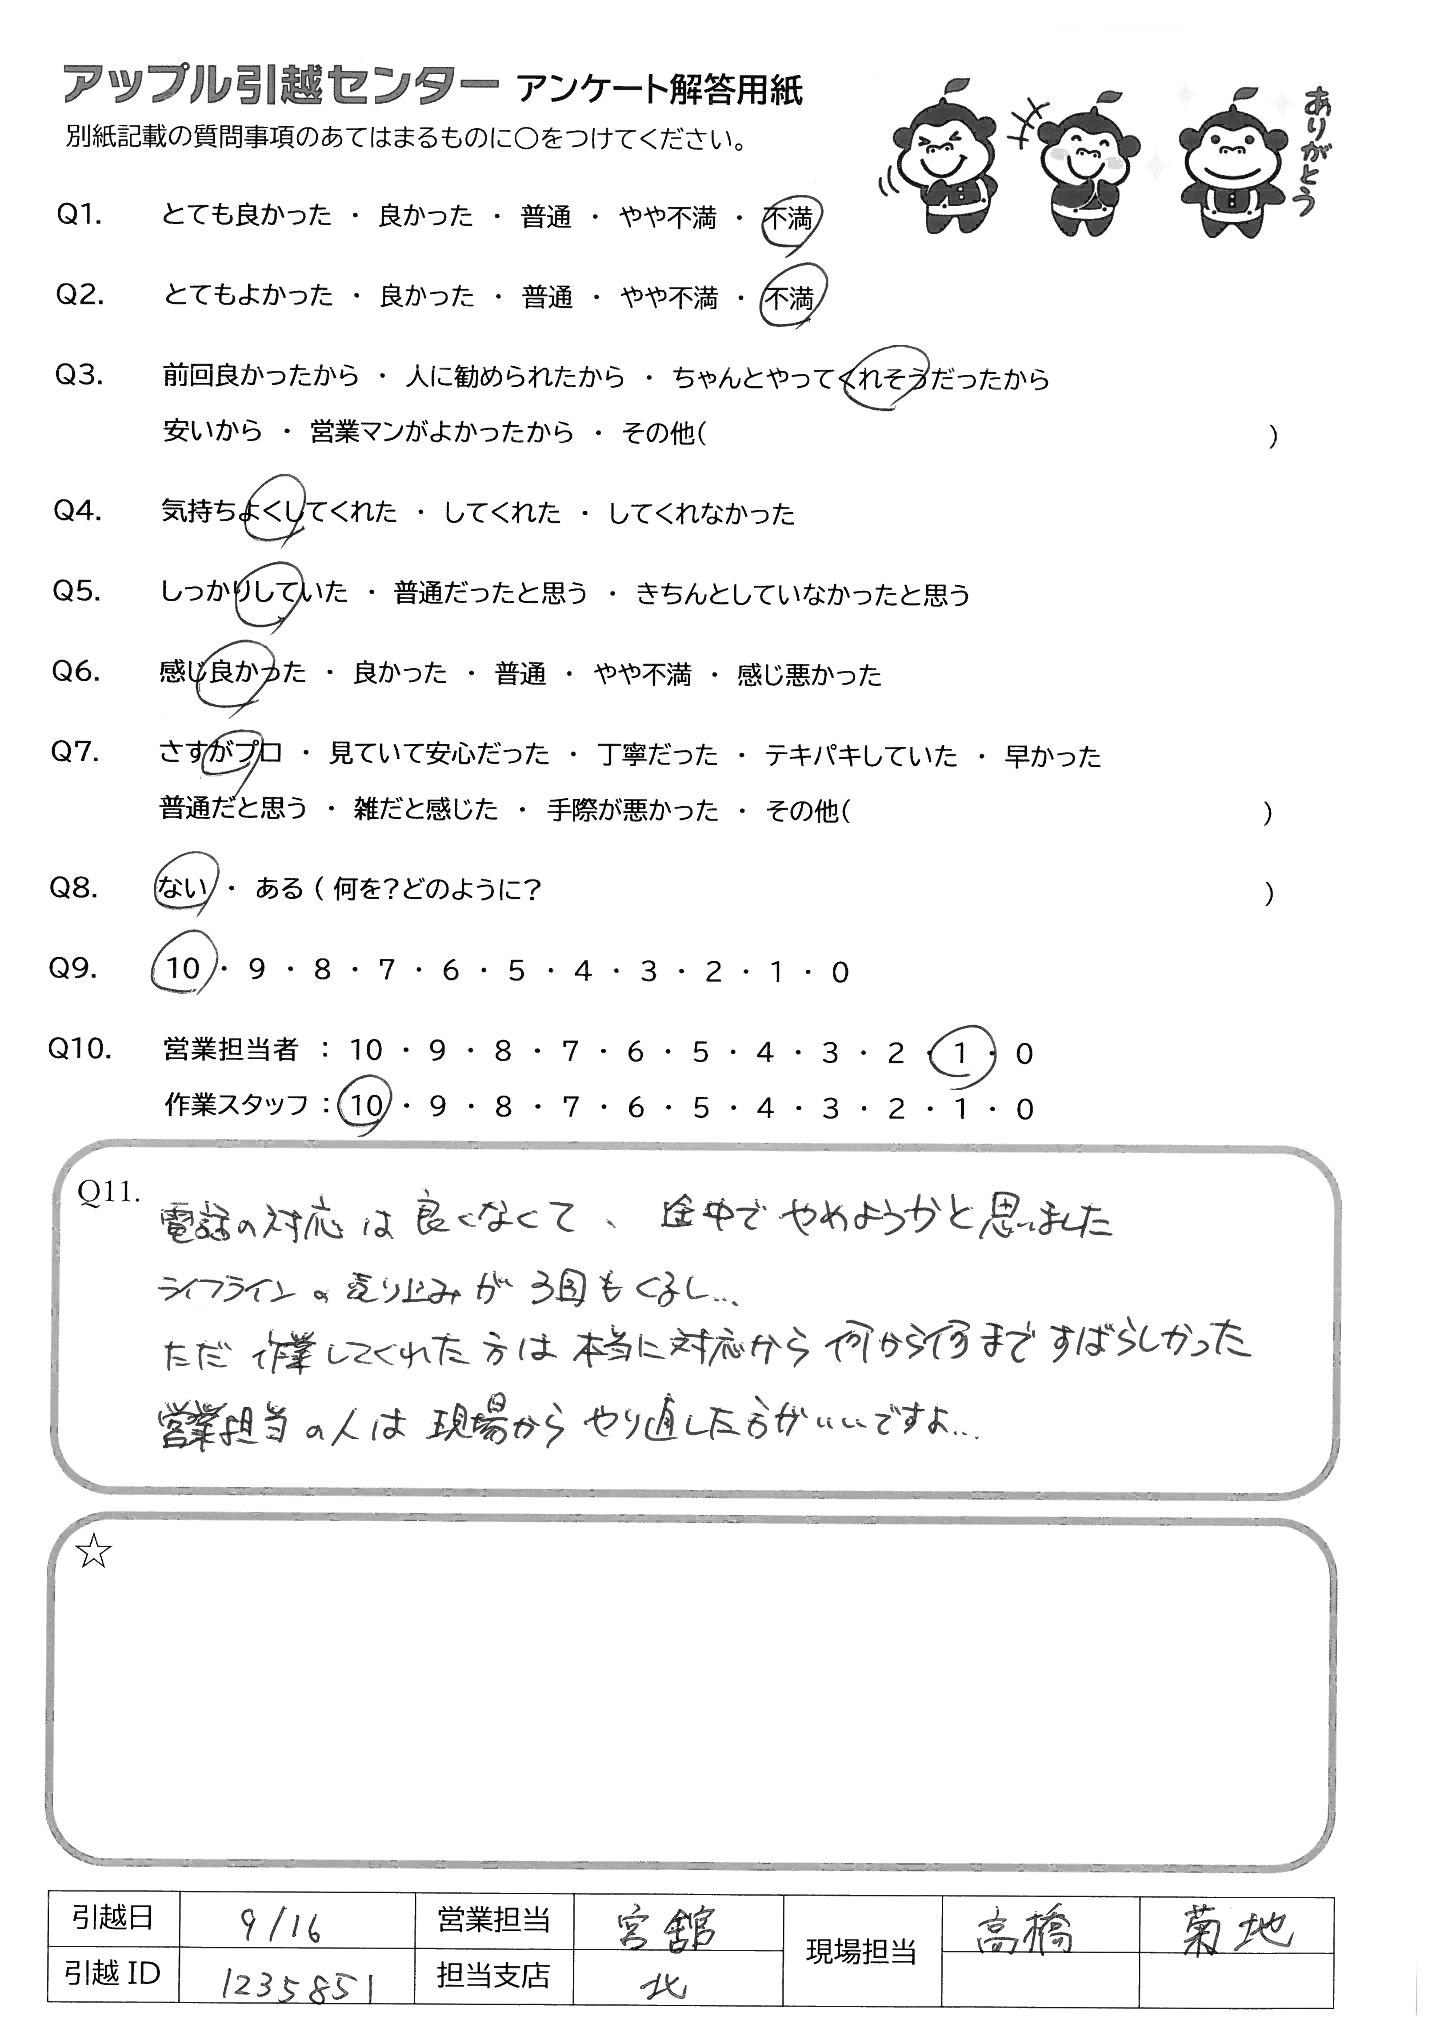 アップル引越センター アンケート解答用紙
別紙記載の質問事項のあてはまるものに○をつけてください。
ありがとう
Q1. とても良かった ・ 良かった ・ 普通 ・ やや不満 ・ 不満
Q2. とてもよかった ・ 良かった ・ 普通 ・ やや不満 ・ 不満
Q3. 前回良かったから ・ 人に勧められたから ・ ちゃんとやってくれそうだったから
安いから ・ 営業マンがよかったから ・ その他( )
Q4. 気持ちよくしてくれた ・ してくれた ・ してくれなかった
Q5. しっかりしていた ・ 普通だったと思う ・ きちんとしていなかったと思う
Q6. 感じ良かった ・ 良かった ・ 普通 ・ やや不満 ・ 感じ悪かった
Q7. さすがプロ ・ 見ていて安心だった ・ 丁寧だった ・ テキパキしていた ・ 早かった
普通だと思う ・ 雑だと感じた ・ 手際が悪かった ・ その他( )
Q8. ない ・ ある ( 何を?どのように? )
Q9. 10 ・ 9 ・ 8 ・ 7 ・ 6 ・ 5 ・ 4 ・ 3 ・ 2 ・ 1 ・ 0
Q10. 営業担当者 : 10 ・ 9 ・ 8 ・ 7 ・ 6 ・ 5 ・ 4 ・ 3 ・ 2 ・ 1 ・ 0
作業スタッフ : 10 ・ 9 ・ 8 ・ 7 ・ 6 ・ 5 ・ 4 ・ 3 ・ 2 ・ 1 ・ 0
Q11. 電話の対応は良くなくて、途中でやめようかと思いました
ライフラインの売り込みが3回もくるし...
ただ作業してくれた方は本当に対応から何から何まですばらしかった
営業担当の人は現場からやり直した方がいいですよ...
☆
引越日 9/16 営業担当 宮舘 現場担当 高橋 菊地
引越ID 1235851 担当支店 北